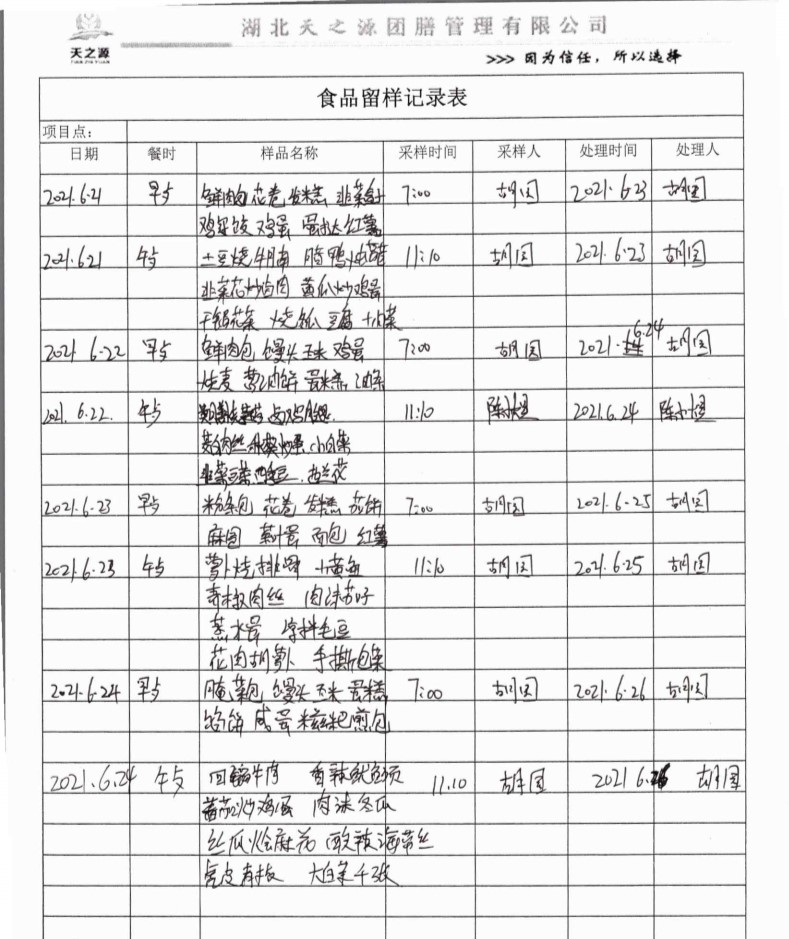 天之源
TIAN ZHI YUAN
湖北天之源团膳管理有限公司
>>> 因为信任，所以选择
食品留样记录表
项目点：
日期 餐时 样品名称 采样时间 采样人 处理时间 处理人
2021.6.21 早点 鲜肉 花卷 发糕 韭菜 7:00 胡国 2021.6.23 胡国
鸡蛋 蛋挞 红薯
2021.6.21 午点 土豆烧牛腩 11:10 胡国 2021.6.23 胡国
韭菜花炒肉 黄瓜炒鸡蛋
干锅花菜 豆腐
2021 6.22 早点 鲜肉包 馒头 玉米 鸡蛋 7:00 胡国 2021. 6.24 胡国
烧麦 蛋糕 油条
2021.6.22. 午点 11:10 2021.6.24
肉丝 小白菜
西兰花
2021.6.23 早点 粉条包 花卷 发糕 7:00 胡国 2021.6.25 胡国
麻园 面包 红薯
2021.6.23 午点 萝卜烧排骨 小黄鱼 11:10 胡国 2021.6.25 胡国
青椒肉丝 肉沫茄子
蒸水蛋 毛豆
花肉胡萝卜 手撕包菜
2021.6.24 早点 腌菜包 馒头 玉米 蛋糕 7:00 胡国 2021.6.26 胡国
馅饼 咸蛋 糍粑 煎包
2021.6.24 午点 回锅牛肉 香辣鱿鱼须 11.10 胡国 2021 6.26 胡国
蕃茄炒鸡蛋 肉沫冬瓜
丝瓜烩麻花 酸辣海带丝
亮皮青椒 大白菜千张